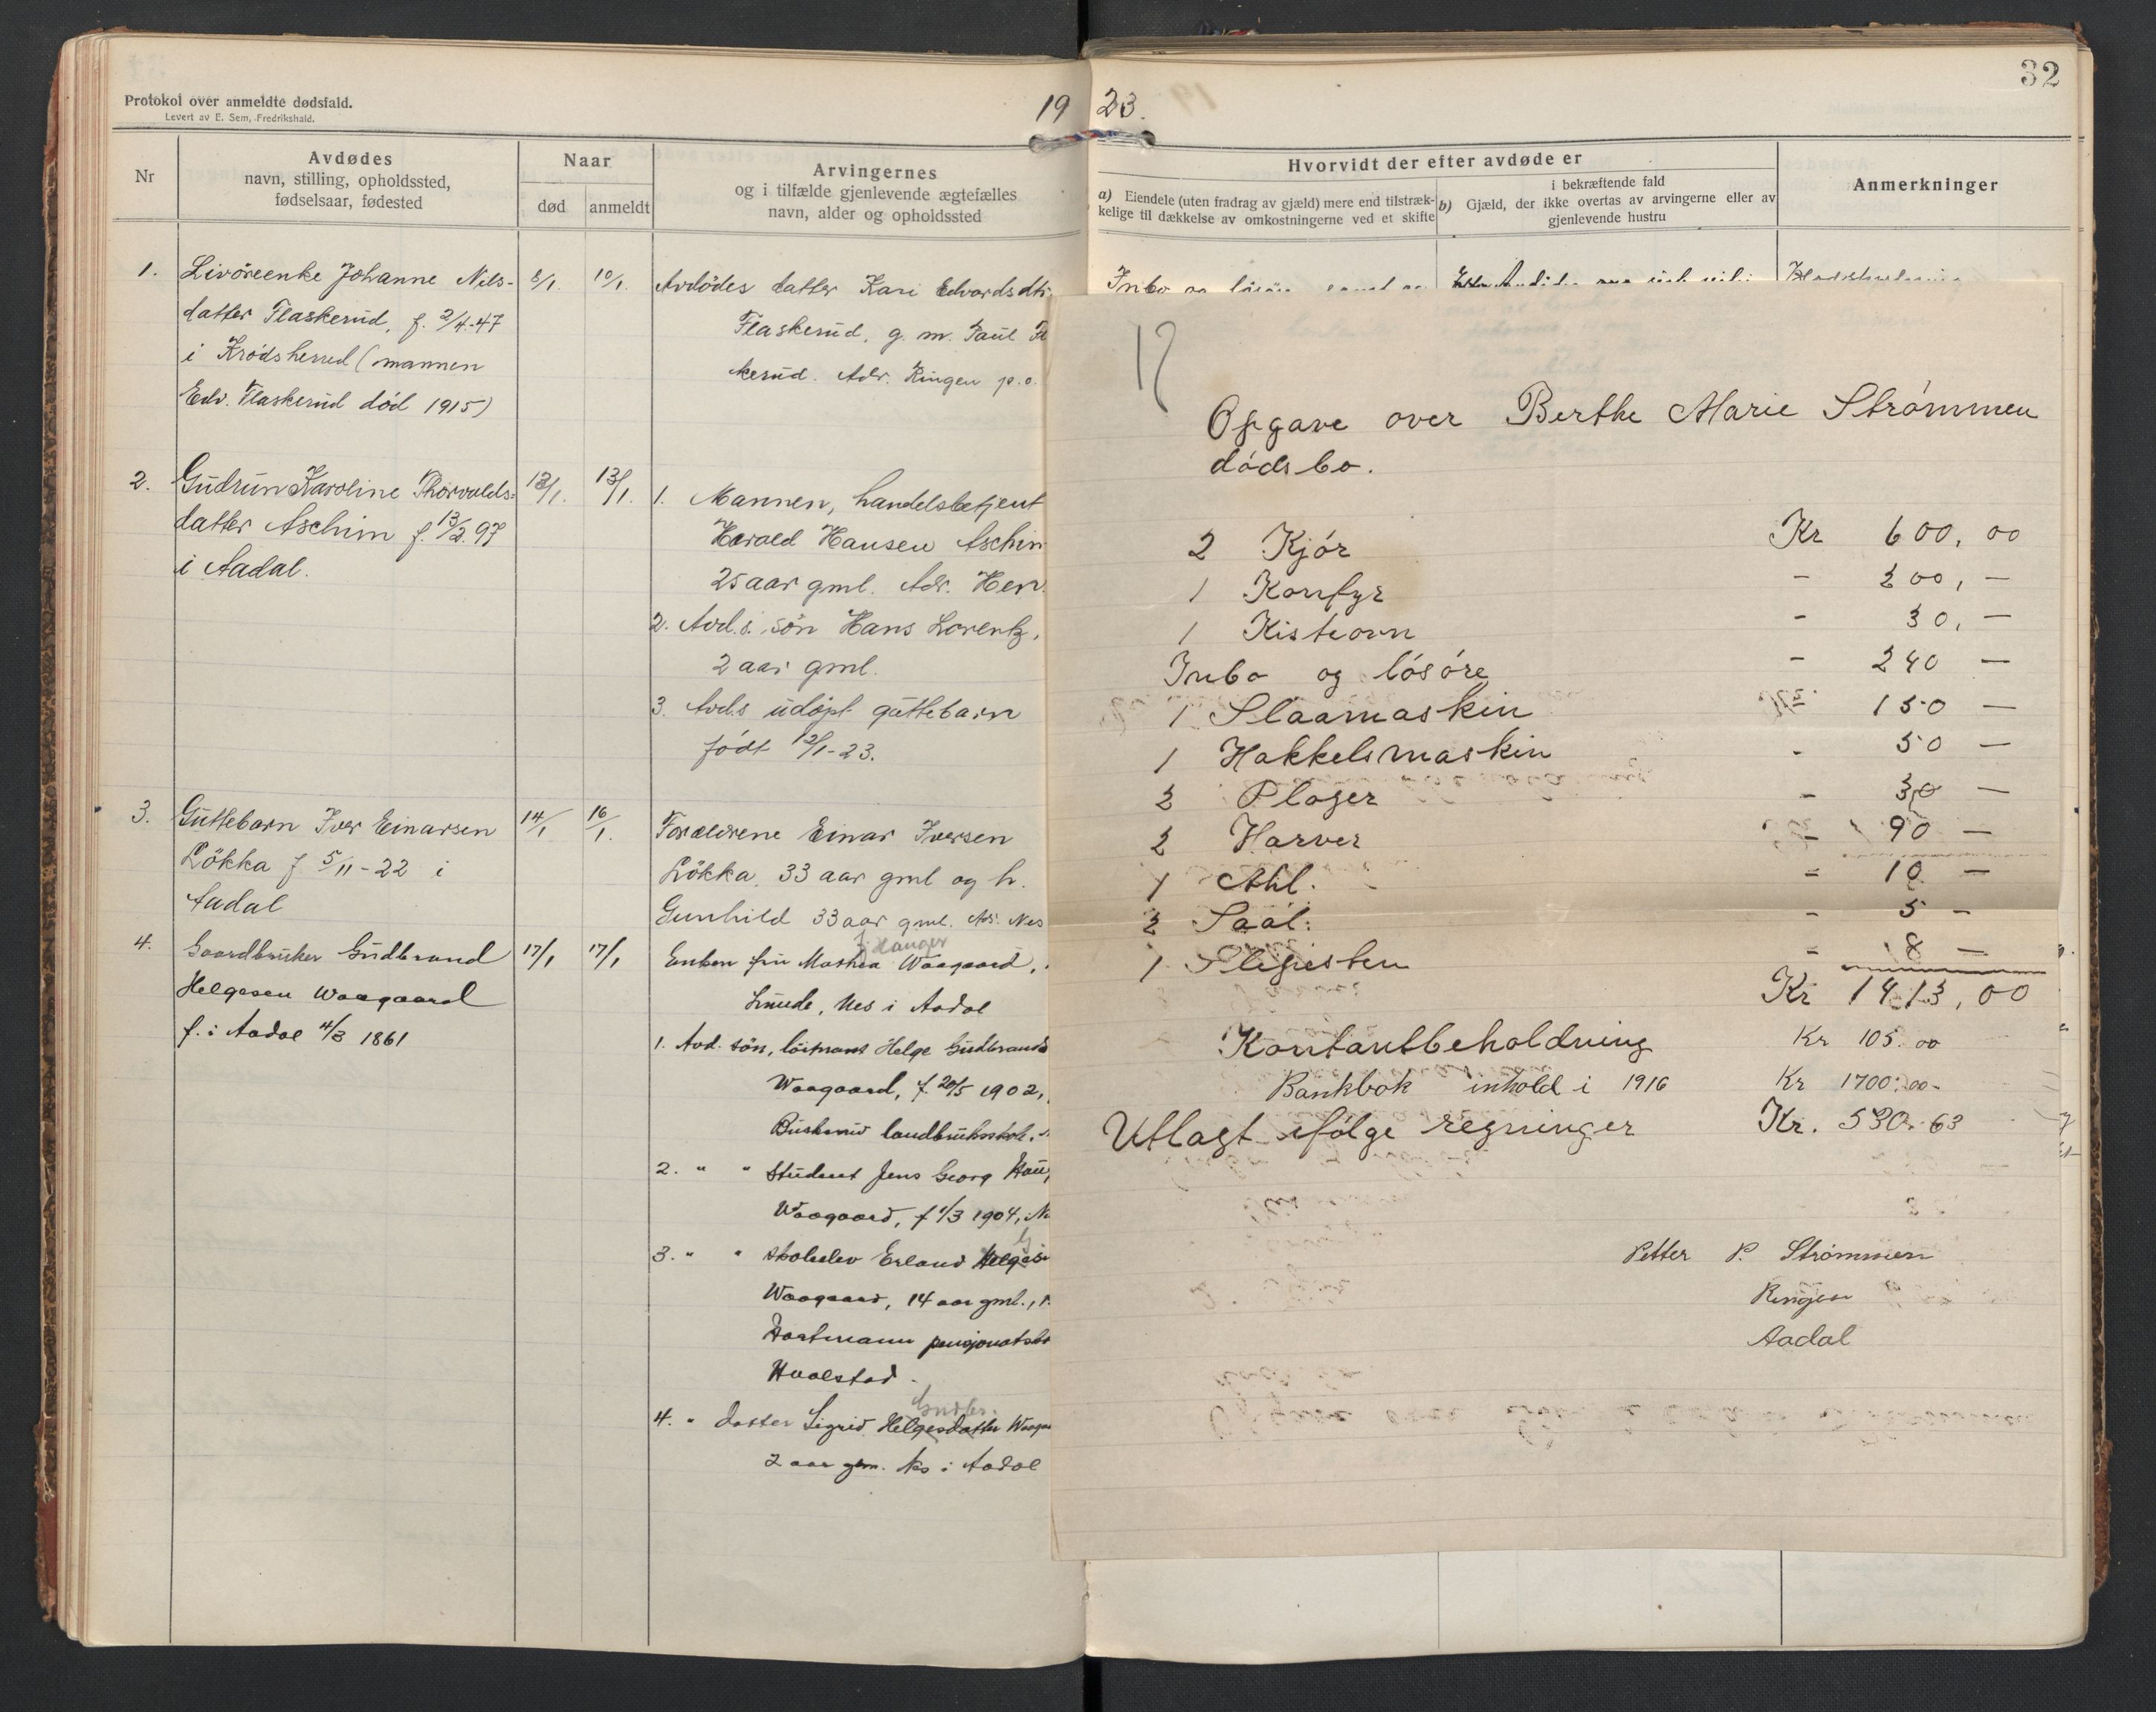 Protokol over anmeldte dødsfald.
Levert av E. Sem, Fredrikshald.
19
Nr
Avdødes
navn, stilling, opholdssted,
fødselsaar, fødested
Naar
død
anmeldt
Arvingernes
og i tilfælde gjenlevende ægtefælles
navn, alder og opholdssted
1.
Livöreenke Johanne Nils-
datter Flaskerud, f. 2/4-47
i Krödsherred (mannen
Edv. Flaskerud död 1915)
8/1.
10/1.
Avdödes datter Kari Edvardsdtr.
Flaskerud, g. m. Paul Fl
kerud. Adr. Ringen p.o.
2.
Gudrun Karoline Thorvalds-
datter Aschim f. 13/2.97
i Aadal.
12/1.
13/1.
1. Mannen, handelsbetjent
Harald Hansen Aschim
25 aar gml. Adr. Hen.
2. Avd.s. sön Hans Lorentz,
2 aar gml.
3. Avd.s udöpt guttebarn
født 12/1-23.
3.
Guttebarn Iver Einarsen
Lökka f 5/11-22 i
Aadal
14/1
16/1.
Forældrene Einar Iversen
Lökka, 33 aar gml og h.
Gunhild 33 aar gml. Adr. Nes
4.
Gaardbruker Gudbrand
Helgesen Waagaard
f. i Aadal 4/3 1861
17/1
17/1
f. Hauger
Enken fru Mathea Waagaard,
Lunde, Nes i Aadal
1. Avd. sön, löitnant Helge Gudbrands
Waagaard, f. 20/5 1902,
Buskerud landbruksskole,
2. " " Student Jens Georg Hau
Waagaard, f 1/3 1904, N
3. " " skoleelev Erland Helges
Waagaard, 14 aar gml.,
Hartmann pensjonatsko
Hvalstad.
Gudbr.
4. " datter Sigrid Helgesdatter Waaga
2 aar gm. Nes i Aadal
23.
32
Hvorvidt der efter avdøde er
a) Eiendele (uten fradrag av gjæld) mere end tilstræk-
kelige til dækkelse av omkostningerne ved et skifte
i bekræftende fald
b) Gjæld, der ikke overtas av arvingerne eller av
gjenlevende hustru
Anmerkninger
Inbo og lösöre samt
12
Opgave over Berthe Marie Strømmen
dødsbo.
2 Kjør Kr 600,00
1 Komfyr - 200,—
1 Kisteovn - 30,—
Inbo og løsøre - 240 —
1 Slaamaskin 150 —
1 Hakkelsmaskin - 50 —
2 Ploger - 30 —
2 Harver - 90 —
1 Ahl. - 10 —
2 Saal: - 5 —
1 Slipesten - 8 —
Kr 1413,00
Kontantbeholdning Kr 105.00
Bankbok inhold i 1916 Kr 1700.00-
Utlagt ifølge regninger Kr. 530.63
Petter P. Strømmen
Ringen
Aadal